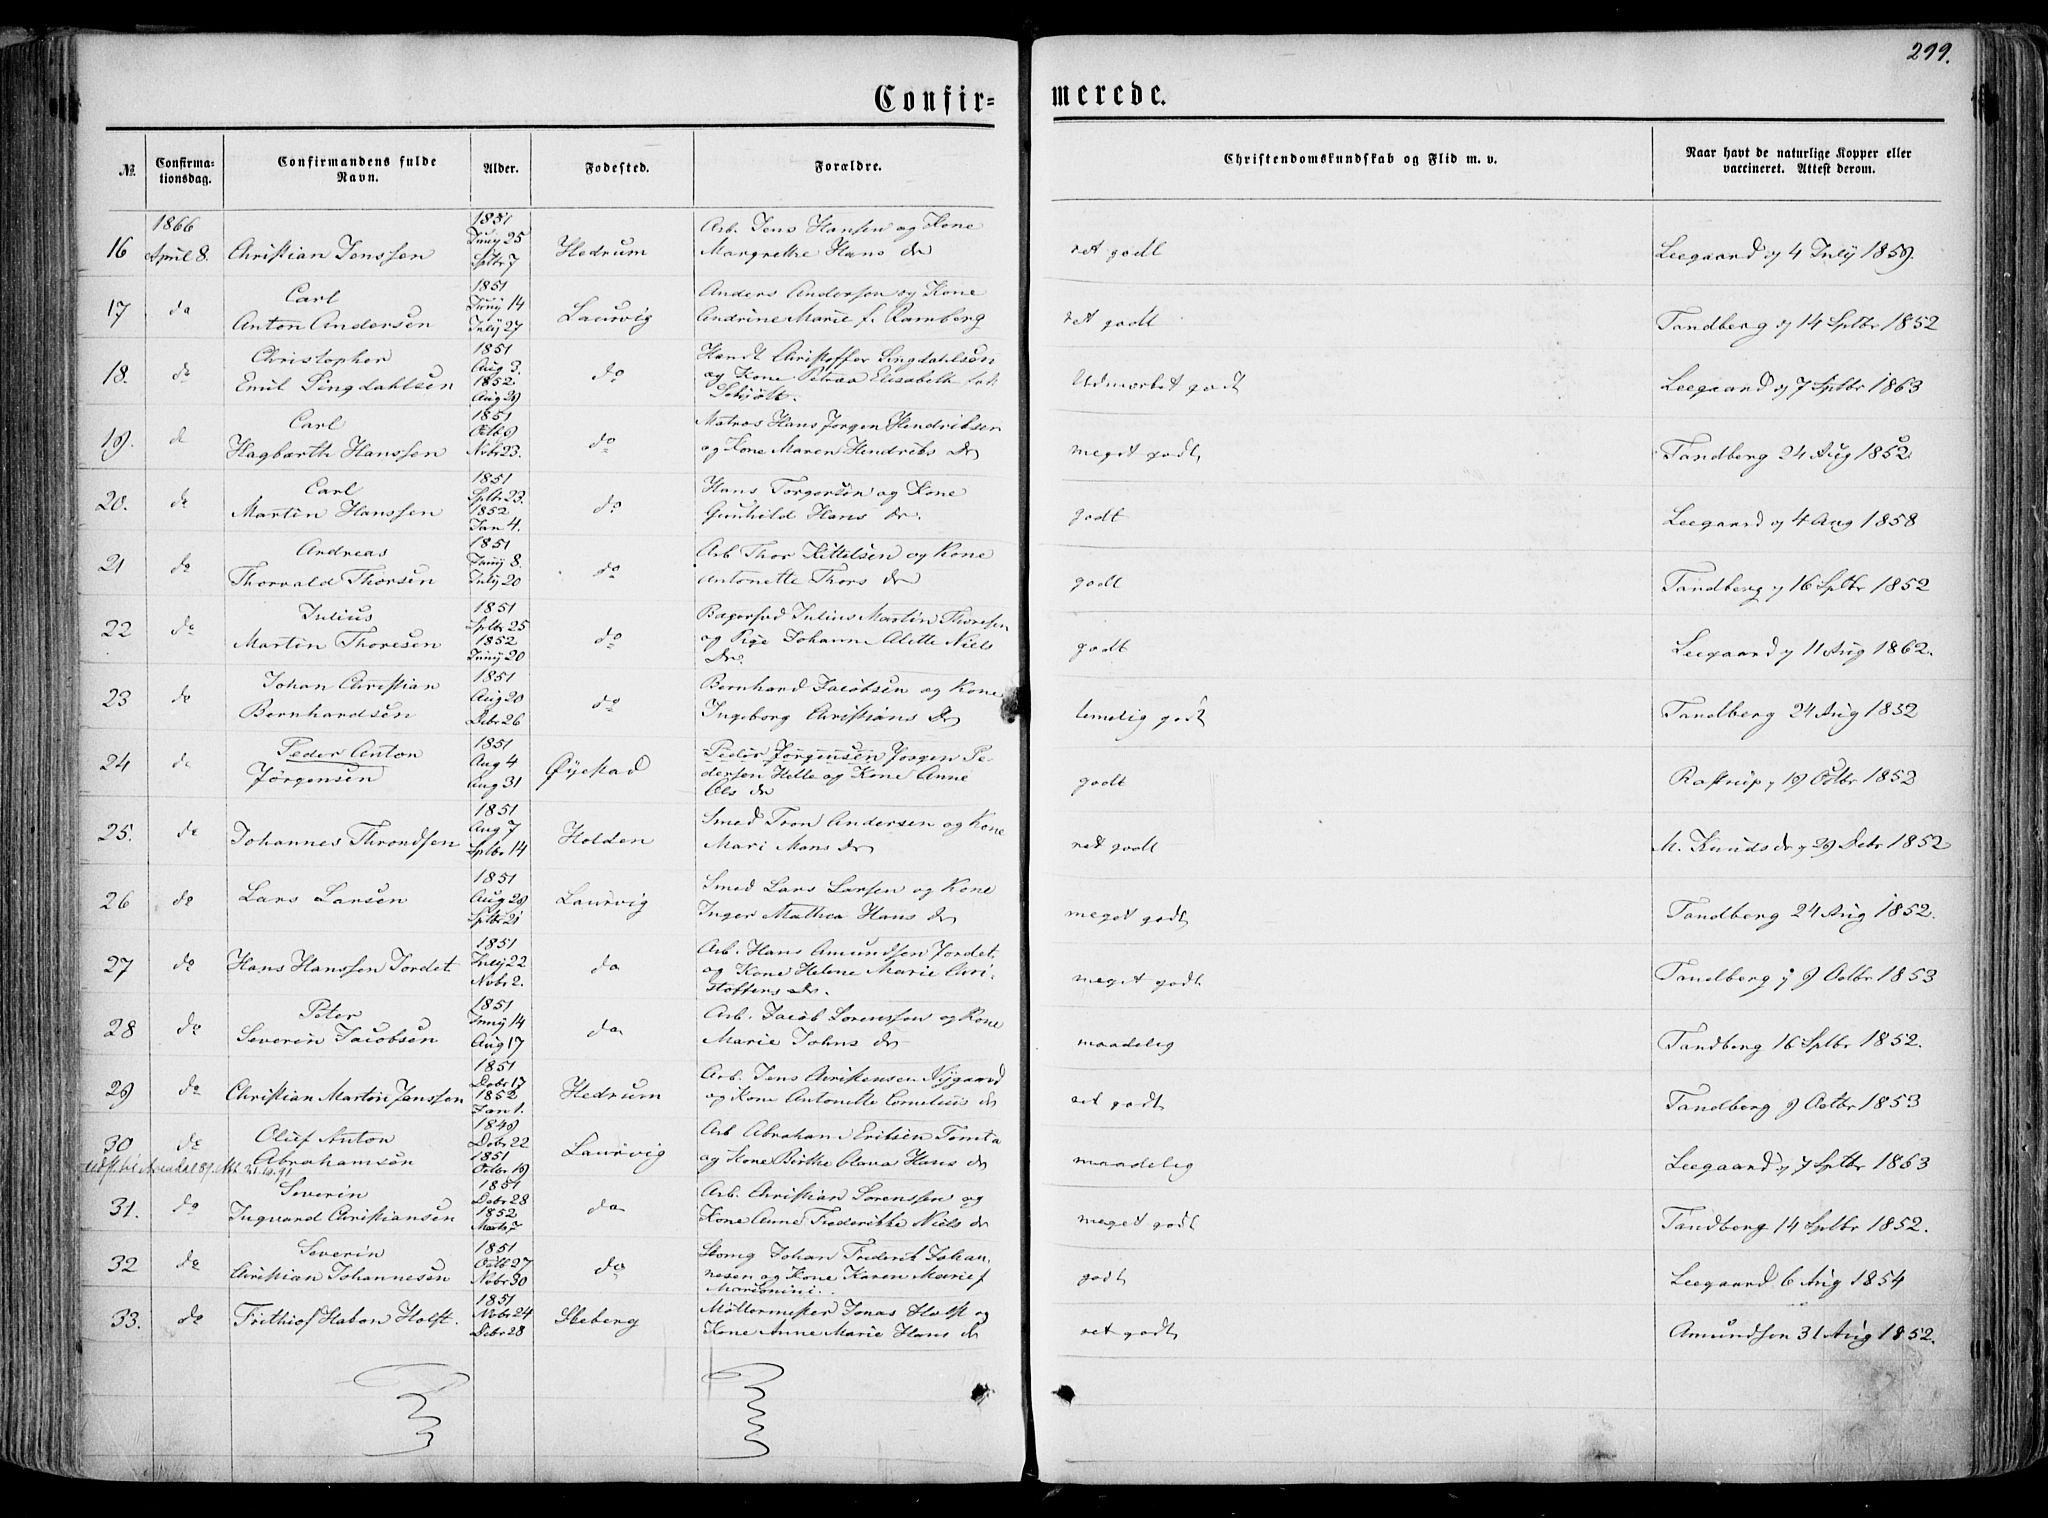 299.
Confir=
merede.
№
Confirma-
tionsdag.
Confirmandens fulde
Navn.
Alder.
Fødested.
Forældre.
Christendomskundskab og Flid m. v.
Naar havt de naturlige Kopper eller
vaccineret. Attest derom.
1866
1851
Juny 25
Arb. Jens Hansen og Kone
16 April 8. Christian Jenssen Sptbr 7 Hedrum Margrethe Hans dr ret godt Leegaard 4 July 1859.
1851
Carl Juny 14 Anders Andersen og Kone
17 do Anton Andersen July 27 Laurvig Andrine Marie f. Ramberg ret godt Tandberg 14 Sptbr 1852
Christopher 1851
Aug 3. Handl Christoffer Singdahlsen
18. do Emil Singdahlsen 1852. do og Kone Petrea Elisabeth godt Leegaard 7 Sptbr 1863
Aug 29
Carl 1851
Octb 9 Matros Hans Jørgen Hendriksen
19. do Hagbarth Hanssen Nobr 23. do og Kone Maren Hendriks Dr meget godt Tandberg 24 Aug 1852
Carl 1851
Sptbr 23. Hans Torgersen og Kone
20. do Martin Hanssen 1852 do Gunhild Hans dr. godt Leegaard 4 Aug 1858
Jan 4.
Andreas 1851
Juny 8. Arb Thor Kittelsen og Kone
21 do Thorvald Thorsen July 20 do Antonette Thors dr godt Tandberg 16 Sptbr 1852
Julius 1851
Sptbr 25 Bagersvd Julius Martin Thoresen
22 do Martin Thoresen 1852 do og Pige Johanne Alette Niels godt Leegaard 11 Aug 1862.
Juny 20 Dr.
Johan Christian 1851
Aug 20 Bernhard Jacobsen og Kone
23 do Bernhardsen Debr 26 do Ingeborg Christians Dr temelig godt Tandberg 24 Aug 1852
Peder Anton 1851
Aug 4 Peder Jørgensen Jørgen Pe-
24 do Jørgensen Aug 31 Øyestad dersen Helle og Kone Anne godt Rastrup 19 Octbr 1852
Ols dr
1851
Aug 7 Smed Tron Andersen og Kone
25. do Johannes Throndsen Sptbr 14 Holden Mari Mons dr ret godt M. Knudsdr 29 Debr 1852
1851
Aug 29 Smed Lars Larsen og Kone
26 do Lars Larsen Sptbr 21 Laurvig Inger Mathea Hans dr meget godt Tandberg 24 Aug 1852.
1851
July 22 Arb. Hans Amundsen Jordet
27 do Hans Hanssen Jordet Nobr 2. do og Kone Helene Marie Chri-
stoffers dr. meget godt Tandberg 9 Octbr 1853
Peter 1851
Juny 14 Arb. Jacob Sørenssen og Kone
28 do Severin Jacobsen Aug 17 do Marie Johns dr maadelig Tandberg 16 Sptbr 1852.
1851
Debr 17 Arb. Jens Christensen Nygaard
29 do Christian Martin Janssen 1852 Hedrum og Kone Antonette Cornelius dr ret godt Tandberg 9 Octbr 1853
Jan 1.
Oluf Anton 1849
Debr 22 Arb Abraham Eriksen Tomta
30 do Abrahamsen 1851 Laurvig og Kone Birthe Olava Hans dr maadelig Leegaard 7 Sptbr 1863
Octbr 19
Severin 1851
Debr 28 Arb. Christian Sørenssen og
31. do Ingvard Christiansen 1852 do Kone Anne Frederikke Niels dr meget godt Tandberg 14 Sptbr 1852.
Marts 7
Severin 1851
Octb 27 Johan Frederik Johan-
32 do Christian Johannesen Nobr 30 do nesen og Kone Karen Marie f godt Leegaard 6 Aug 1854
1851
Nobr 24 Møllermester Jonas Holst og
33. do Frithiof Habon Holst. Debr 28 Kone Anne Marie Hans dr ret godt Amundsen 31 Aug 1852.